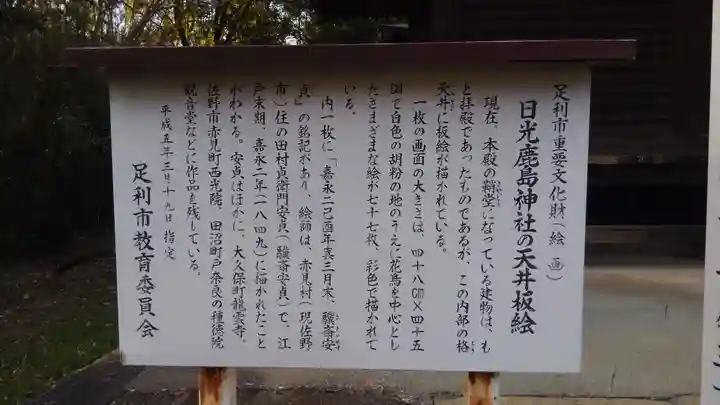 足利市重要文化財（絵画）
日光鹿島神社の天井板絵
現在、本殿の鞘堂になっている建物は、も
と拝殿であったものであるが、この内部の格
天井に板絵が描かれている。
一枚の画面の大きさは、四十八㎝×四十五
㎝で白色の胡粉の地のうえに花鳥を中心とし
たさまざまな絵が七十七枚、彩色で描かれて
いる。
内一枚に「嘉永二己酉年真三月末、駿斎安
貞」の銘記があり、絵師は、赤見村（現佐野
市）住の田村貞衛門安貞（駿斎安貞）で、江
戸末期、嘉永二年（一八四九）に描かれたこと
がわかる。安貞はほかに、大久保町龍雲寺、
佐野市赤見町西光院、田沼町戸奈良の種徳院
観音堂などに作品を残している。
平成五年三月十九日 指定
足利市教育委員会